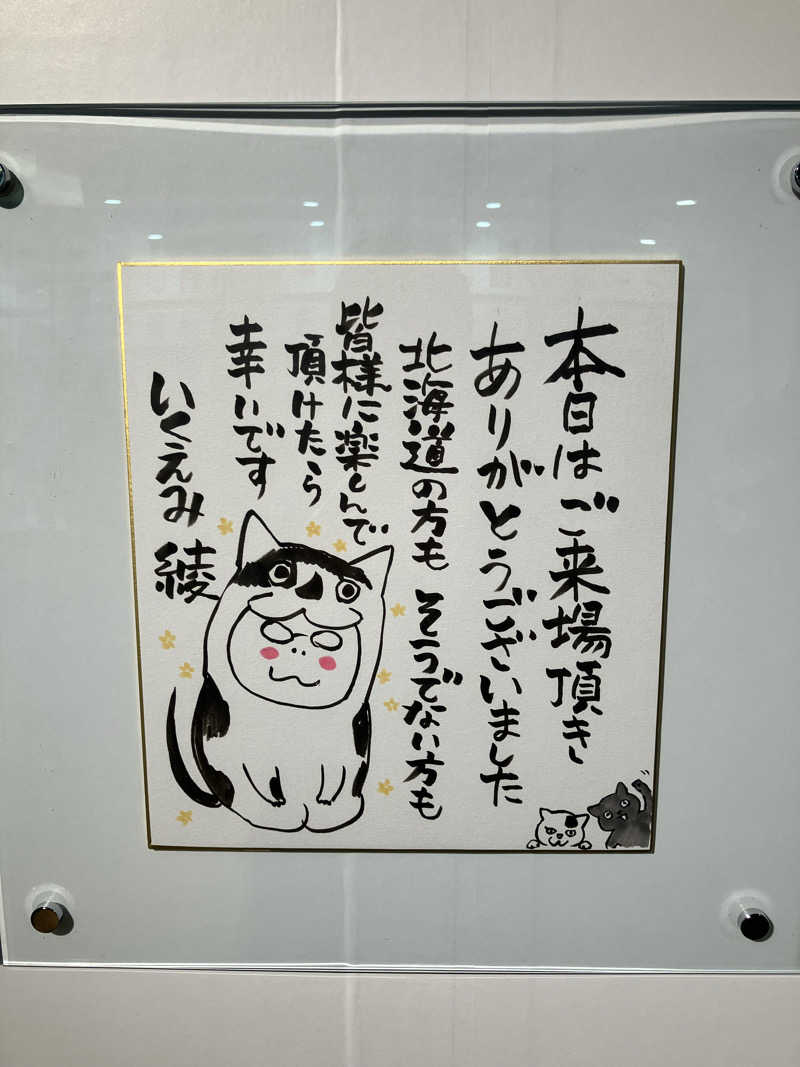 本日はご来場頂き
ありがとうございました
北海道の方も そうでない方も
皆様に楽しんで
頂けたら
幸いです
いくえみ 綾